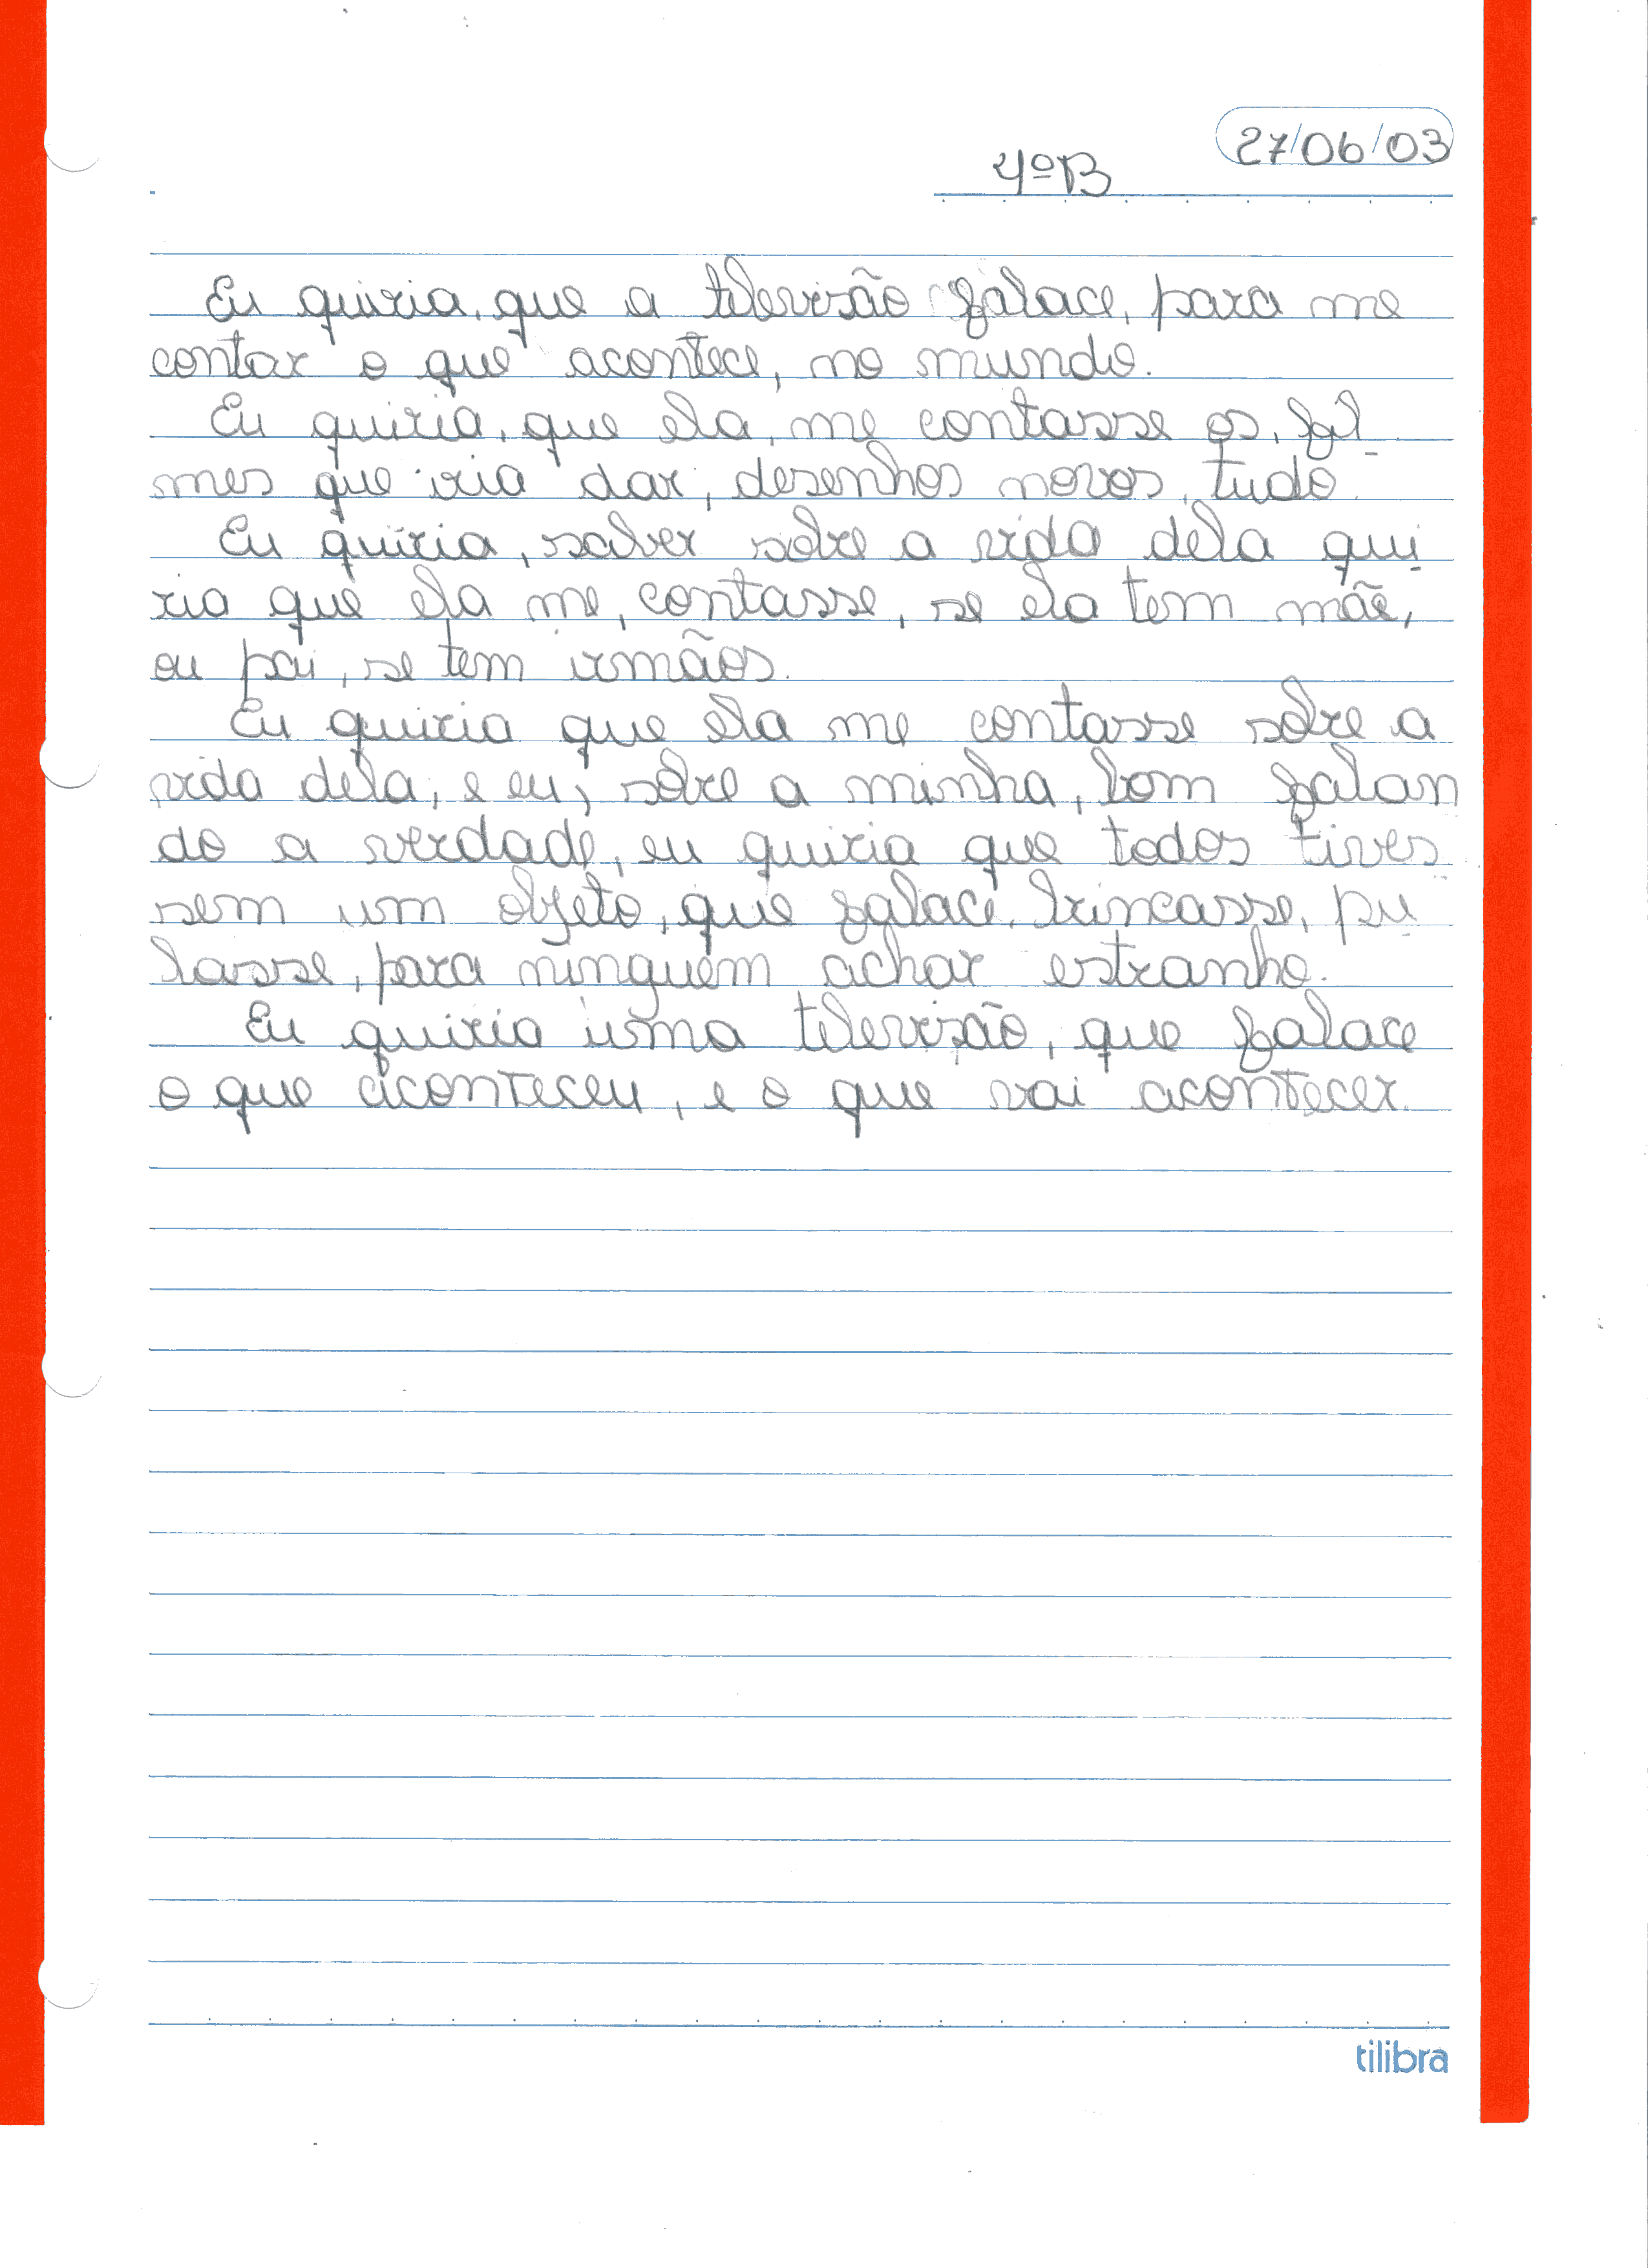 27/06/03
4ºB
Eu quiria, que a televisão falace, para me
contar o que acontece, no mundo.
Eu quiria, que ela, me contasse os, fil
mes que iria dar, desenhos novos, tudo.
Eu quiria, saber sobre a vida dela qui
ria que ela me, contasse, se ela tem mãe,
ou pai, se tem irmãos.
Eu quiria que ela me contasse sobre a
vida dela, e eu, sobre a minha, bom falan
do a verdade, eu quiria que todos tives
sem um objeto, que falace, brincasse, pu
lasse, para ninguém achar estranho.
Eu quiria uma televisão, que falace
o que aconteceu, e o que vai acontecer.
tilibra